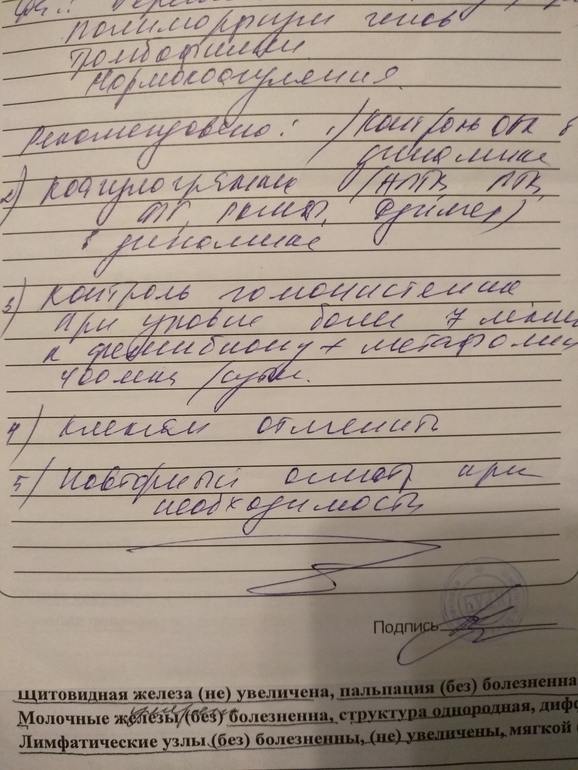 полиморфизм генов
тромбофилии
Нормокоагуляция.
Рекомендовано: 1) Контроль ОАК в
динамике
2) коагулограмма (АПТВ, ПТВ,
ТВ, РФМК, Ддимер)
в динамике
3) контроль гомоцистеина
при уровне более 7
к фемибиону + метафолин
400мкг /сутки.
4) клексан отменить
5) Повторный осмотр при
необходимости
Подпись
Щитовидная железа (не) увеличена, пальпация (без) болезненна
Молочные железы (без) болезненна, структура однородная, диф
Лимфатические узлы (без) болезненны, (не) увеличены, мягкой